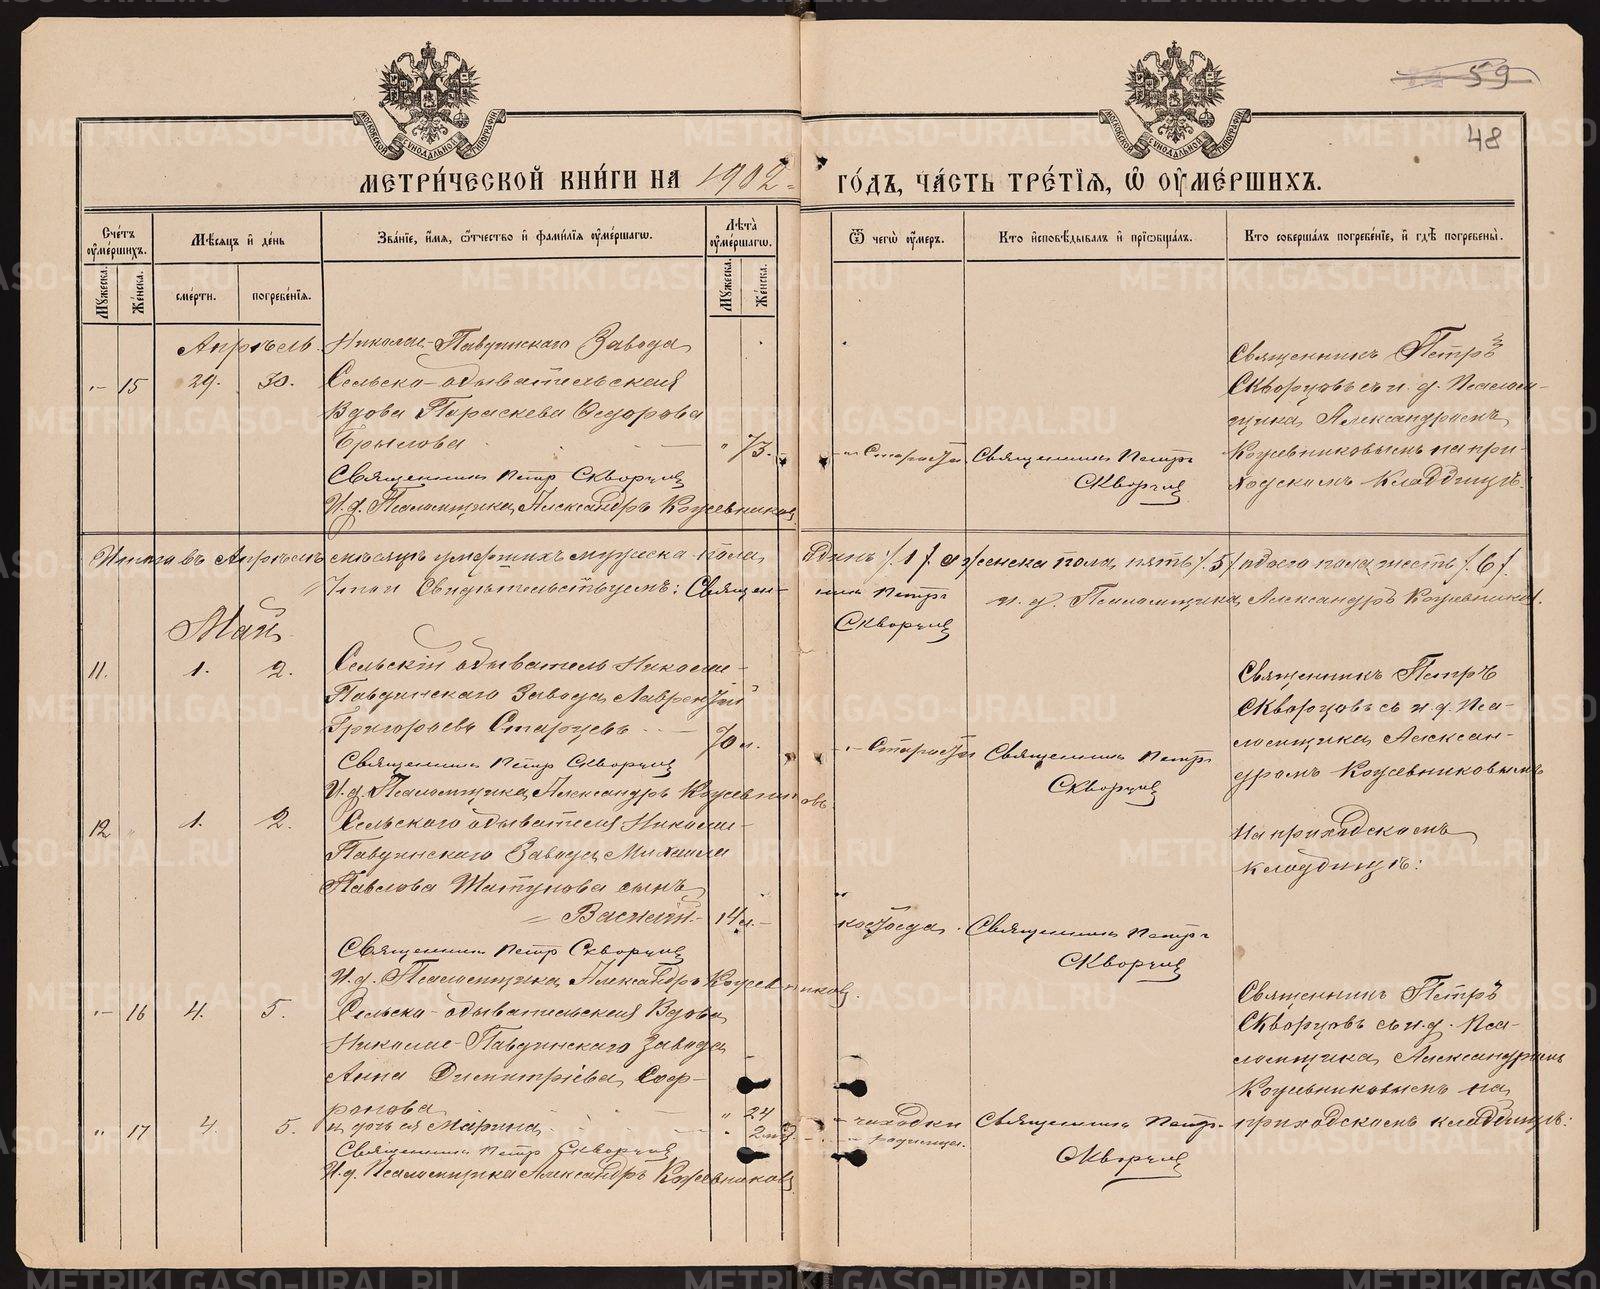 59
48
МОСКОВСКОЙ СѴНОДАЛЬНОЙ ТИПОГРАФІИ
МОСКОВСКОЙ СѴНОДАЛЬНОЙ ТИПОГРАФІИ
МЕТРИ́ЧЕСКОЙ КНИ́ГИ НА 1902 ГО́ДЪ, ЧА́СТЬ ТРЕ́ТІЯ, Ѽ ОУМЕ́РШИХЪ.
Сче́тъ оумершихъ.
Мужеска.
Же́нска.
Мѣсяцъ и день
сме́рти.
погребе́нїя.
Зва́нїе, имя, отчество и фами́лїя оумершагѡ.
Лѣта̀ оумершагѡ.
Мужеска.
Же́нска.
Ѿ чегѡ оумеръ.
Кто исповѣдывалъ и прїобщалъ.
Кто совершалъ погребе́нїе, и гдѣ погребены̀.
Апрѣль
15 29. 30.
Николае-Павдинскаго Завода
Сельско-обывательская
Вдова Параскева Ѳедорова
Брылова 73.
Священникъ Петр Скворцов
И.д. Псаломщика Александръ Кожевников
Старости
Священникъ Петръ
Скворцов
Священникъ Петръ
Скворцовъ съ и. д. Псалом-
щика Александромъ
Кожевниковымъ на при-
ходскомъ кладбищѣ.
Итого въ Апрѣлѣ мѣсяцѣ умершихъ мужеска пола Одинъ /1/. а женска пола пять /5/ обоего пола шесть /6/.
Свидѣтельствуемъ: Священ-
никъ Петръ
Скворцов
и. д. Псаломщика Александръ Кожевников.
Май
11. 1. 2.
Сельскій обыватель Николае-
Павдинскаго Завода Лаврентій
Григорьевъ Старцевъ 70 л.
Священникъ Петр Скворцов
И.д. Псаломщика Александръ Кожевниковъ
Старости
Священникъ Петръ
Скворцов
Священникъ Петръ
Скворцовъ съ и.д. Пса-
ломщика Алексан-
дромъ Кожевниковымъ
На приходскомъ
кладбищѣ:
12 1. 2.
Сельскаго обывателя Николае-
Павдинскаго Завода Михаила
Павлова Шатунова сынъ
Василій 14 л.
Священникъ Петр Скворцов
И.д. Псаломщика Александръ Кожевников
костоеда
Священникъ Петръ
Скворцов
16 4. 5.
Сельско-обывательская Вдова
Николае-Павдинскаго Завода
Анна Димитріева Соф-
ронова 24
чахотки
17 4. 5.
и дочь ея Марина
родимца.
Священникъ Петр Скворцов
И.д. Псаломщика Александръ Кожевников
Священникъ Петръ
Скворцов
Священникъ Петръ
Скворцовъ съ и.д. Пса-
ломщика Александромъ
Кожевниковымъ на
приходскомъ кладбищѣ:
METRIKI.GASO-URAL.RU